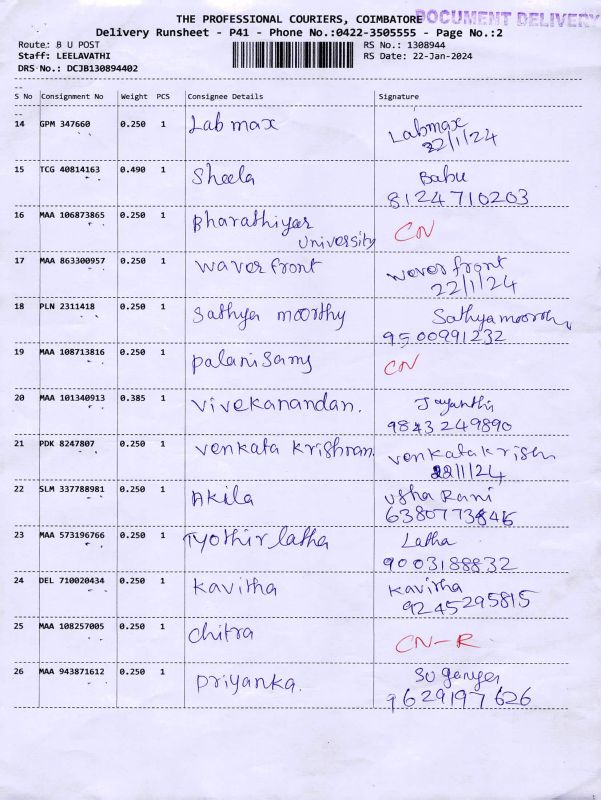 THE PROFESSIONAL COURIERS, COIMBATORE
DOCUMENT DELIVERY
Delivery Runsheet - P41 - Phone No.:0422-3505555 - Page No.:2
Route: B U POST
RS No.: 1308944
Staff: LEELAVATHI
RS Date: 22-Jan-2024
DRS No.: DCJB130894402
S No Consignment No Weight PCS Consignee Details Signature
14 GPM 347660 0.250 1 Lab max Labmax
22/1/24
15 TCG 40814163 0.490 1 Sheela Babu
8124710203
16 MAA 106873865 0.250 1 Bharathiyar CN
University
17 MAA 863300957 0.250 1 waverfront waverfront
22/1/24
18 PLN 2311418 0.250 1 Sathya moorthy Sathyamoorthy
9500991232
19 MAA 108713816 0.250 1 palanisamy CN
20 MAA 101340913 0.385 1 vivekanandan. Jayanthi
9843249890
21 PDK 8247807 0.250 1 venkata krishnan. venkatakrish
22/1/24
22 SLM 337788981 0.250 1 Akila Usha Rani
23 MAA 573196766 0.250 1 Jyothirlatha Latha
9003188832
24 DEL 710020434 0.250 1 kavitha kavitha
9245295815
25 MAA 108257005 0.250 1 chitra CN-R
26 MAA 943871612 0.250 1 priyanka.
9629197626